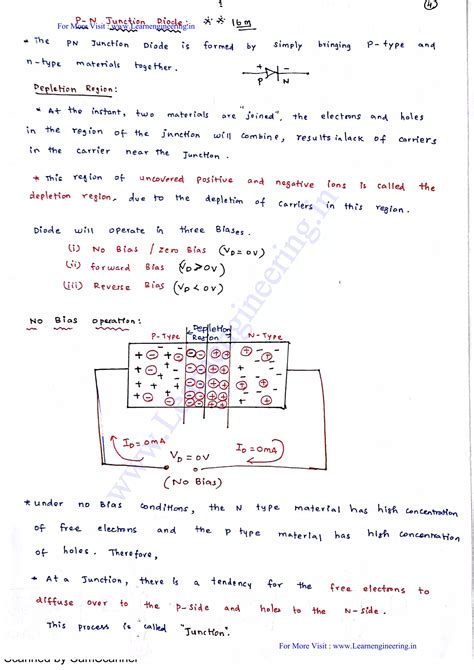 1
(4)
P-N Junction Diode: * * 16m
For More Visit : www.Learnengineering.in
* The PN Junction Diode is formed by simply bringing P-type and
n-type materials together.
+ -
P N
Depletion Region:
* At the instant, two materials are "joined", the electrons and holes
in the region of the junction will combine, results in lack of carriers
in the carrier near the Junction.
* This region of uncovered positive and negative ions is called the
depletion region, due to the depletion of carriers in this region.
Diode will operate in three Biases.
(i) No Bias / zero Bias (VD = 0V)
(ii) forward Bias (VD > 0V)
(iii) Reverse Bias (VD < 0V)
No Bias operation:
P-Type Depletion Region N-Type
ID = 0mA VD = 0V ID = 0mA
(No Bias)
* under no Bias conditions, the N type material has high concentration
of free electrons and the P type material has high concentration
of holes. Therefore,
* At a Junction, there is a tendency for the free electrons to
diffuse over to the P-side and holes to the N-side.
This process is called "Junction".
For More Visit : www.Learnengineering.in
Scanned by CamScanner
www.Learnengineering.in